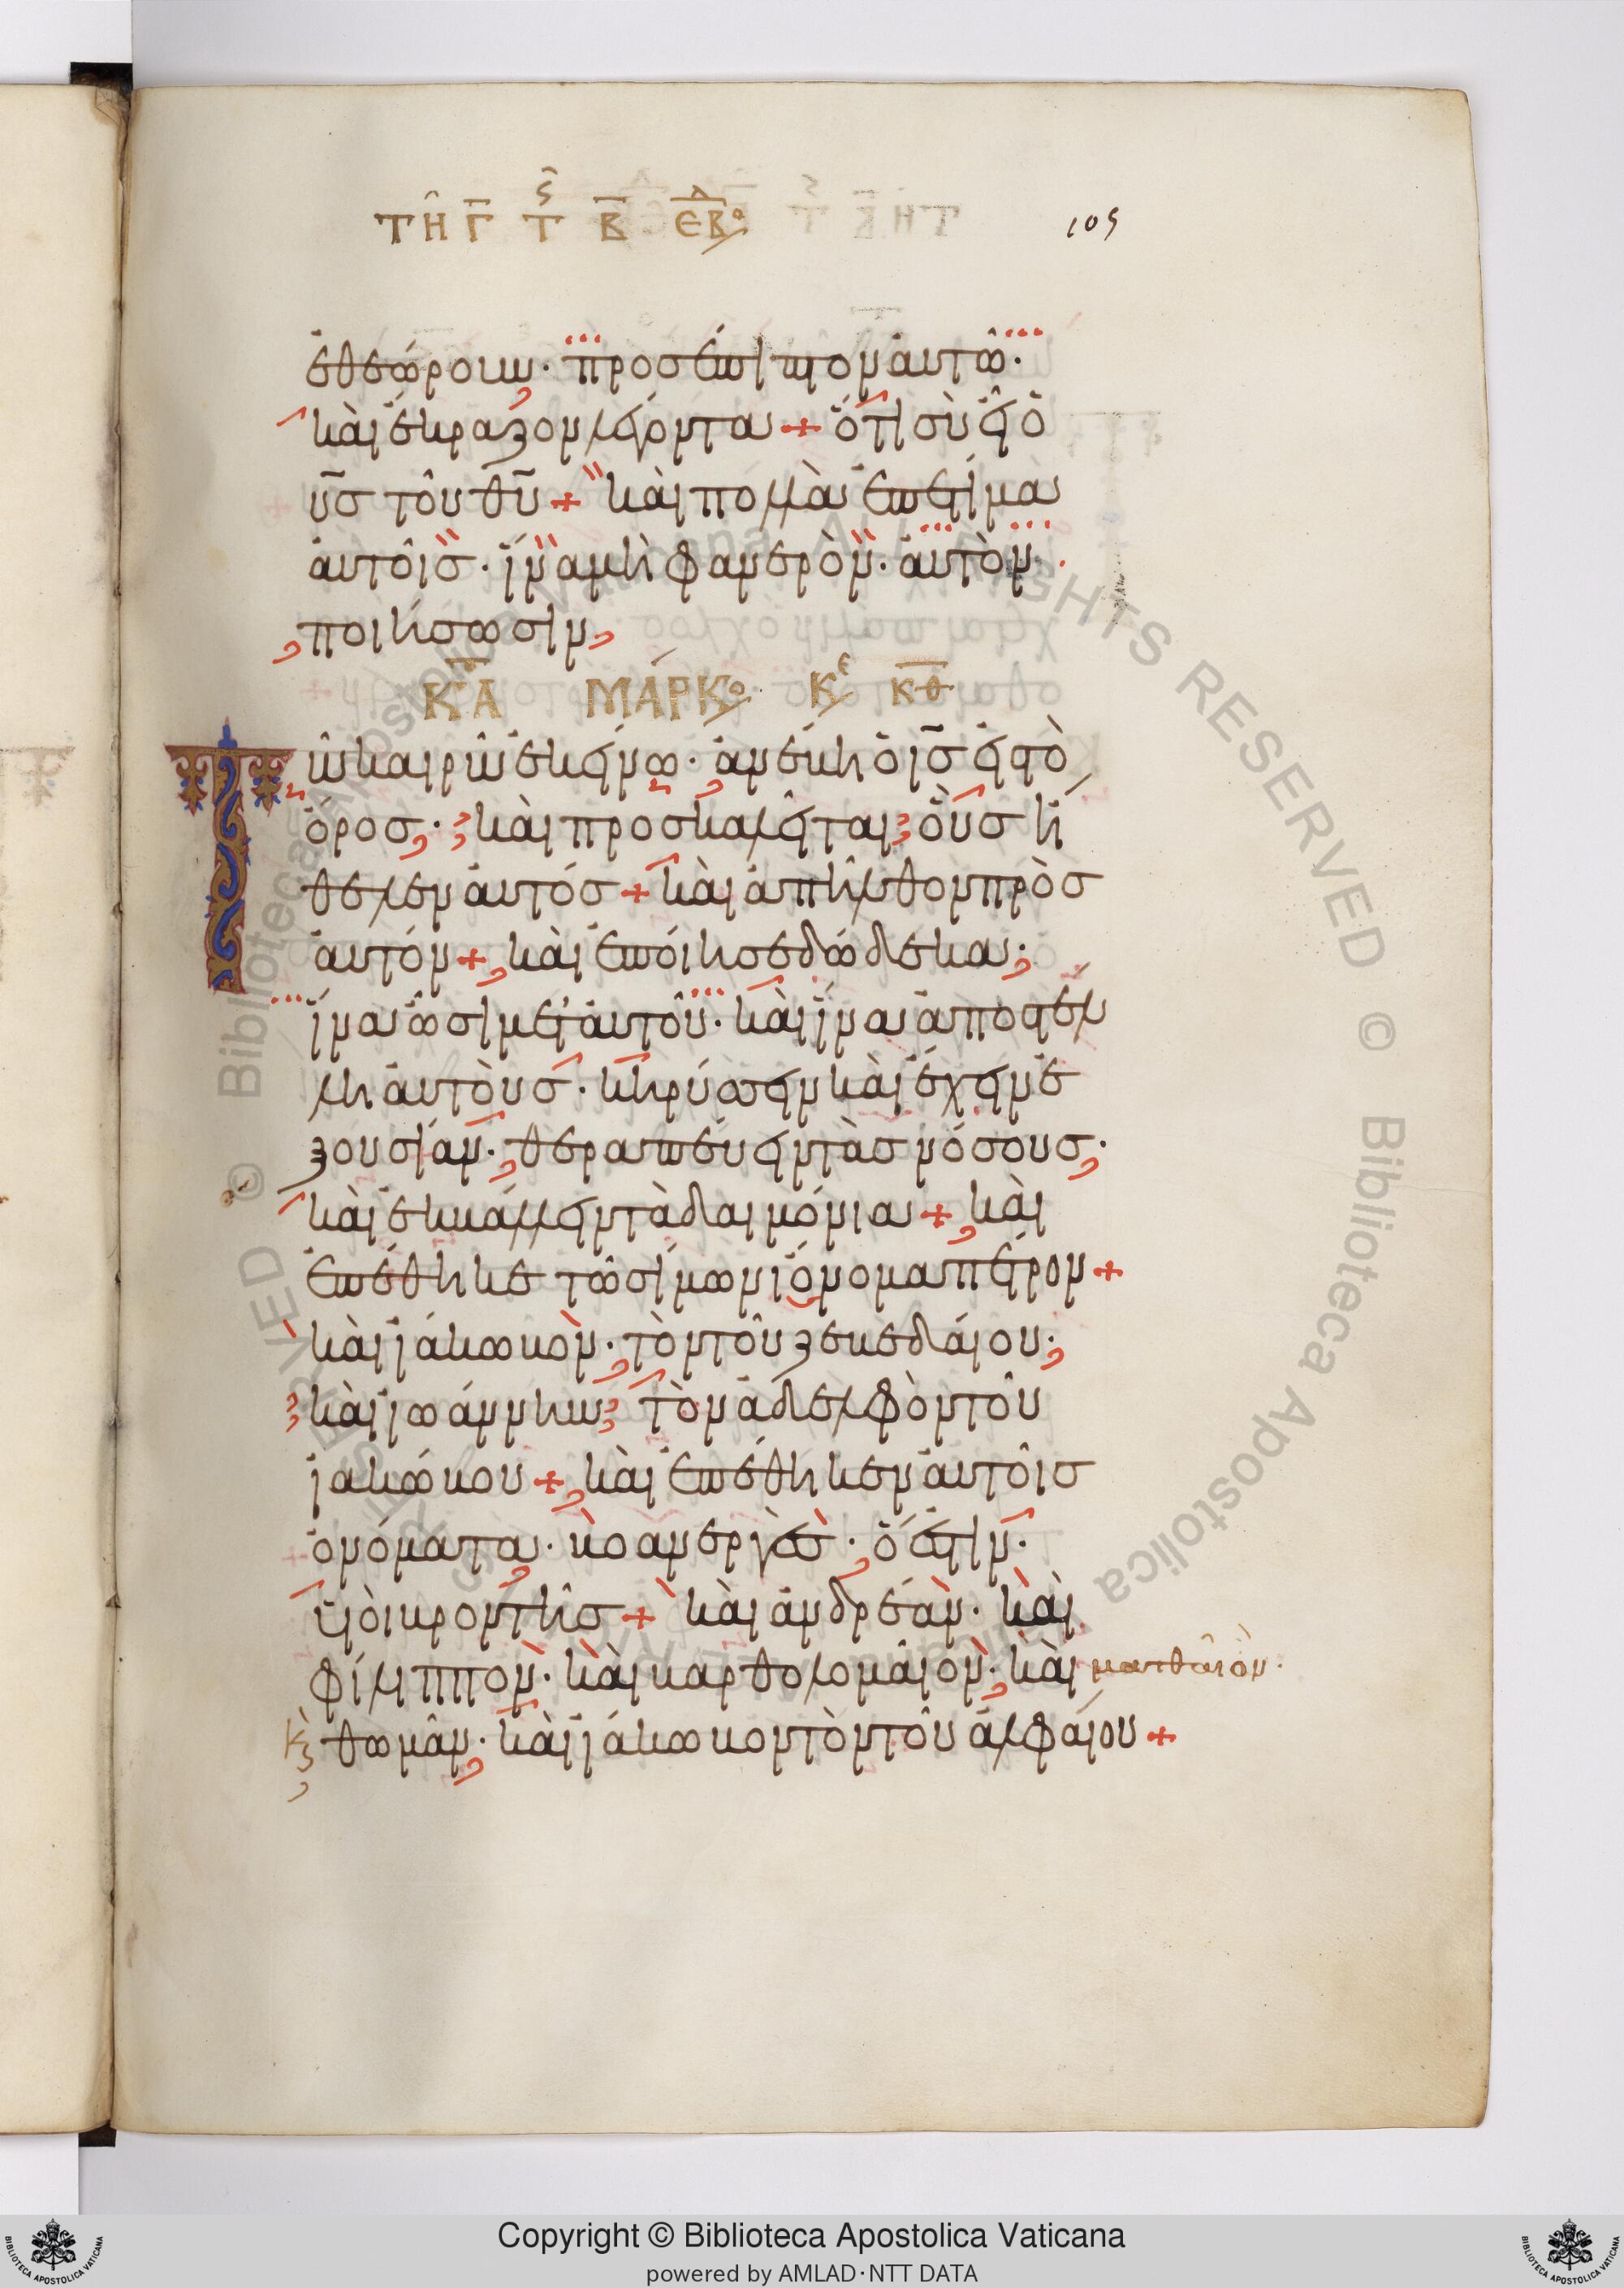 ΤΗ Γ ΤΣ Β ΕΒΔο 105
ἐθεώρουν· προσέπιπτον αὐτῶ·
καὶ ἔκραζον λέγοντα + ὅτι σὺ εἶ ὁ
υ̅σ̅ τοῦ θ̅υ̅ + καὶ πολλὰ ἐπετίμα
αὐτοῖσ· ἵνα μὴ φανερὸν· αὐτὸν·
ποιήσωσιν
ΚΑ ΜΑΡΚο Κε ΚΘ
Τῶ καιρῶ ἐκείνω· ἀνέβη ὁ ι̅σ̅ εἰσ τὸ
ὄροσ· καὶ προσκαλεῖται οὓσ ἤ
θελεν αὐτόσ + καὶ ἀπῆλθον πρὸσ
αὐτόν + καὶ ἐποίησε δώδεκα·
ἵνα ὦσι μετ' αὐτοῦ· καὶ ἵνα ἀποστέλ
λη αὐτοὺσ· κηρύσσειν καὶ ἔχειν ἐ
ξουσίαν· θεραπεύειν τὰσ νόσουσ·
καὶ ἐκβάλλειν τὰ δαιμόνια + καὶ
ἐπέθηκε τῶ σίμωνι ὄνομα πέτρον +
καὶ ἰάκωβὸν· τὸν τοῦ ζεβεδαίου·
καὶ ἰωάννην τὸν ἀδελφὸν τοῦ
ἰακώβου + καὶ ἐπέθηκεν αὐτοῖσ
ὀνόματα· βοανεργὲσ· ὅ ἐστιν·
υἱοὶ βροντῆσ + καὶ ἀνδρέαν· καὶ
φίλιππον· καὶ βαρθολομαῖον· καὶ ματθαῖον·
κ̀ θωμᾶν· καὶ ἰάκωβον τὸν τοῦ ἀλφαίου +
Copyright © Biblioteca Apostolica Vaticana
powered by AMLAD·NTT DATA